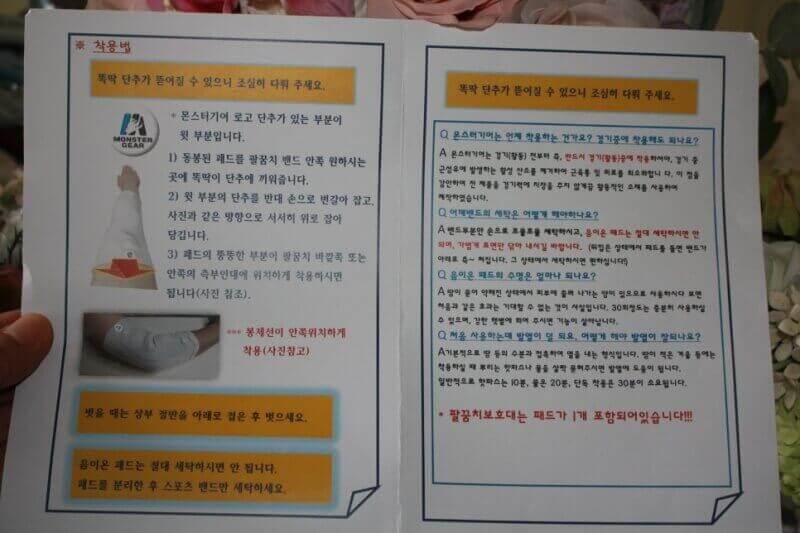 ※ 착용법
똑딱 단추가 뜯어질 수 있으니 조심히 다뤄 주세요.
MONSTER
GEAR
* 몬스터기어 로고 단추가 있는 부분이
윗 부분입니다.
1) 동봉된 패드를 팔꿈치 밴드 안쪽 원하시는
곳에 똑딱이 단추에 끼워줍니다.
2) 윗 부분의 단추를 반대 손으로 번갈아 잡고,
사진과 같은 방향으로 서서히 위로 잡아
당깁니다.
3) 패드의 뚱뚱한 부분이 팔꿈치 바깥쪽 또는
안쪽의 측부인대에 위치하게 착용하시면
됩니다(사진 참조).
*** 봉제선이 안쪽위치하게
착용(사진참고)
벗을 때는 상부 절반을 아래로 접은 후 벗으세요.
음이온 패드는 절대 세탁하시면 안 됩니다.
패드를 분리한 후 스포츠 밴드만 세탁하세요.
똑딱 단추가 뜯어질 수 있으니 조심히 다뤄 주세요.
Q 몬스터기어는 언제 착용하는 건가요? 경기중에 착용해도 되나요?
A 몬스터기어는 경기(활동) 전부터 쭉, 반드시 경기(활동)중에 착용하셔야, 경기 중
근섬유에 발생하는 활성 산소를 제거하여 근육통 및 피로를 최소화합니다. 이 점을
감안하여 전 제품을 경기력에 지장을 주지 않게끔 활동적인 소재를 사용하여
제작하였습니다.
Q 어깨밴드의 세탁은 어떻게 해야하나요?
A 밴드부분만 손으로 조물조물 세탁하시고, 음이온 패드는 절대 세탁하시면 안
되며, 가볍게 표면만 닦아 내시길 바랍니다. (뒤집은 상태에서 패드를 돌면 밴드가
아래로 축~ 처집니다. 그 상태에서 세탁하시면 편하십니다!)
Q 음이온 패드의 수명은 얼마나 되나요?
A 땀이 음이 약해진 상태에서 피부에 흘러 나가는 땀이 있으므로 사용하시다 보면
처음과 같은 효과는 기대할 수 없는 것이 사실입니다. 30회정도는 충분히 사용하실
수 있으며, 강한 햇볕에 쬐어 주시면 기능이 살아납니다.
Q 처음 사용하는데 발열이 덜 되요. 어떻게 해야 발열이 잘되나요?
A 기본적으로 땀 등의 수분과 접촉하여 열을 내는 형식입니다. 땀이 적은 겨울 등에는
착용하실 때 뿌리는 핫파스나 물을 살짝 묻혀주시면 발열에 도움이 됩니다.
일반적으로 핫파스는 10분, 물은 20분, 단독 착용은 30분이 소요됩니다.
* 팔꿈치보호대는 패드가 1개 포함되어있습니다!!!